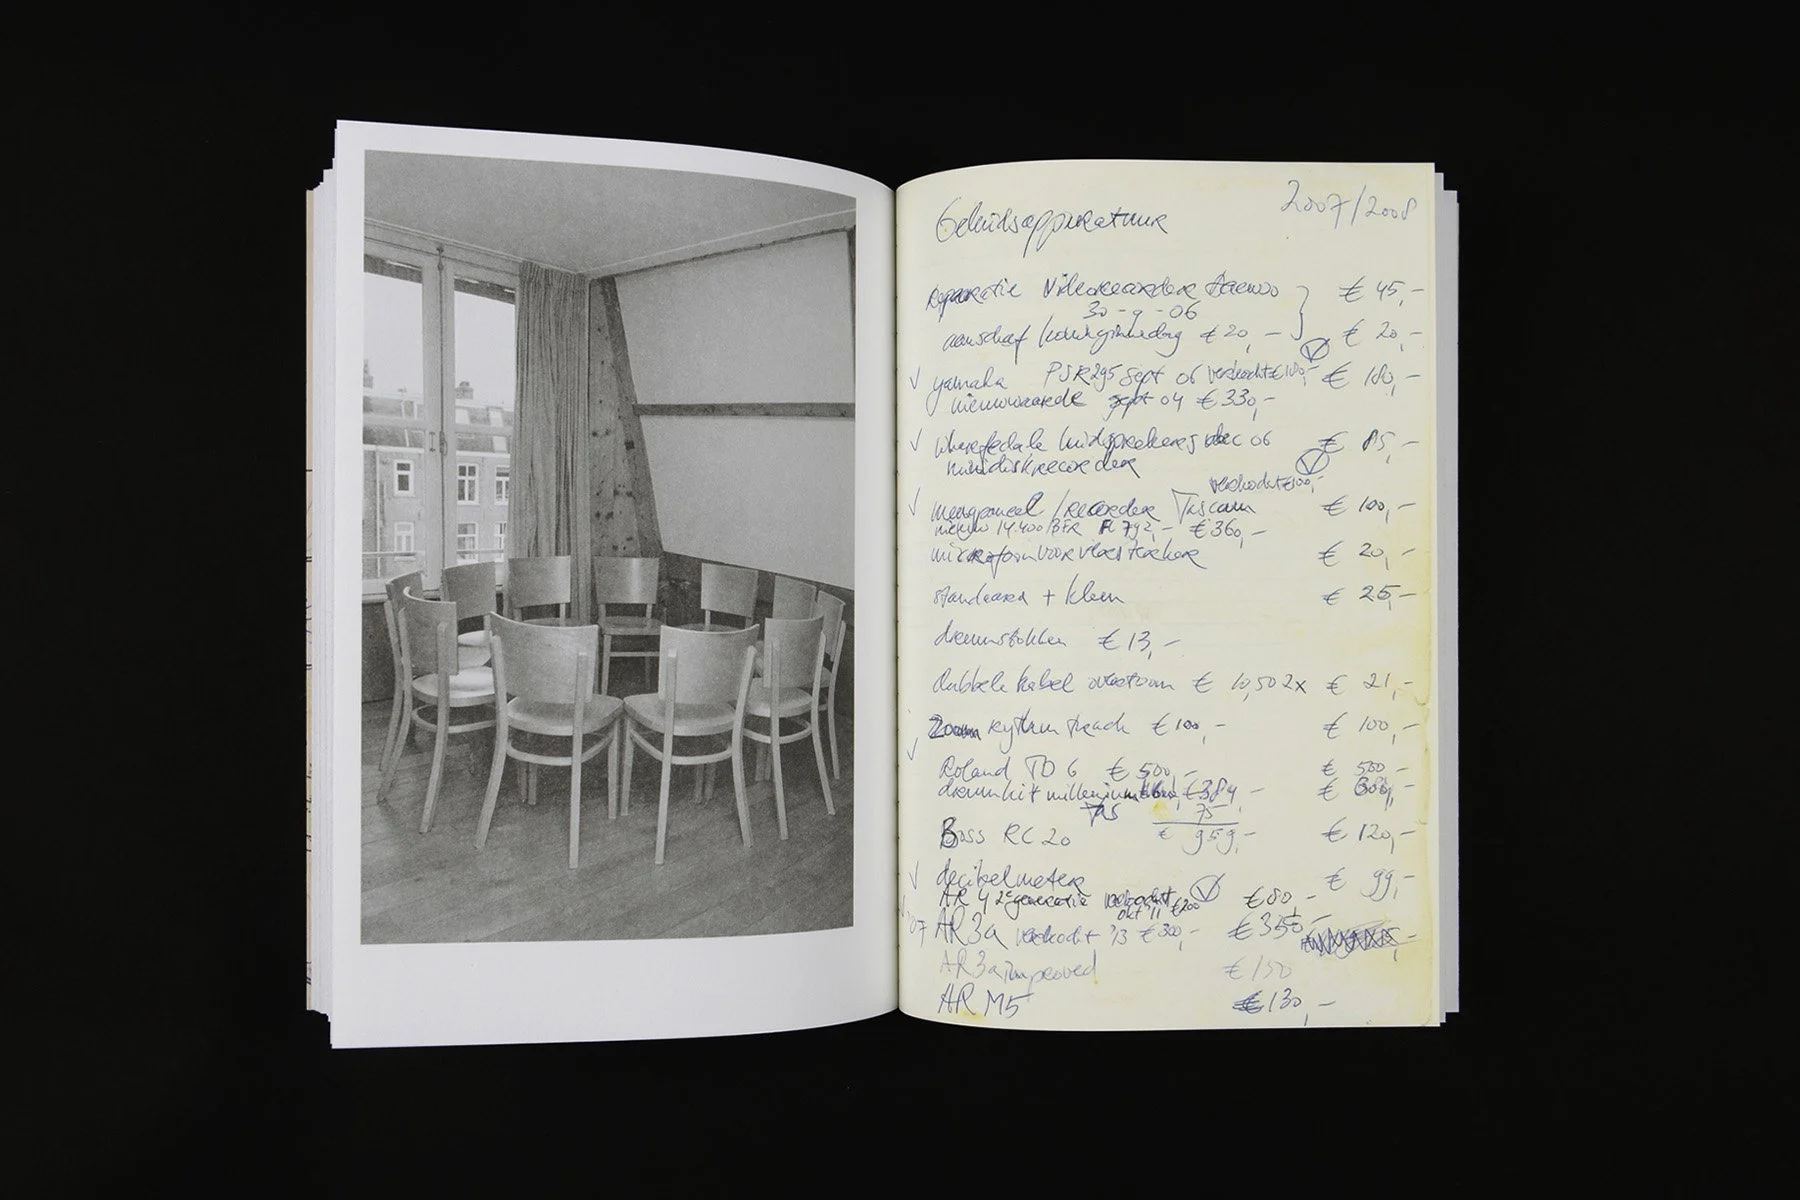 2007/2008
Geluidsapparatuur
reparatie Videorecorder Daewoo € 45,-
30-9-06
aanschaf koninginnedag € 20,- € 20,-
√ yamaha PSR295 sept 06 verkocht €180,- € 180,-
nieuwwaarde sept 04 € 330,-
√ Wharfedale luidsprekers dec 06 € 85,-
minidiskrecorder
verkocht €100,-
√ mengpaneel/recorder Tascam € 100,-
nieuw 14.400/BFR Fl 792,- € 360,-
microfoon voor versterker € 20,-
standaard + klem € 25,-
drumstokken € 13,-
dubbele kabel € 10,50 2x € 21,-
Zoom rythm trach € 100,- € 100,-
√ Roland TD 6 € 500,- € 500,-
drumkit millenium € 384,-
75
Boss RC 20 € 959,- € 120,-
√ decibelmeter € 99,-
AR 4 2e generatie verkocht € 80,-
okt '11 €200
'07 AR3a verkocht '13 € 300,- € 350,-
AR3a improved € 150
AR M5 € 130,-